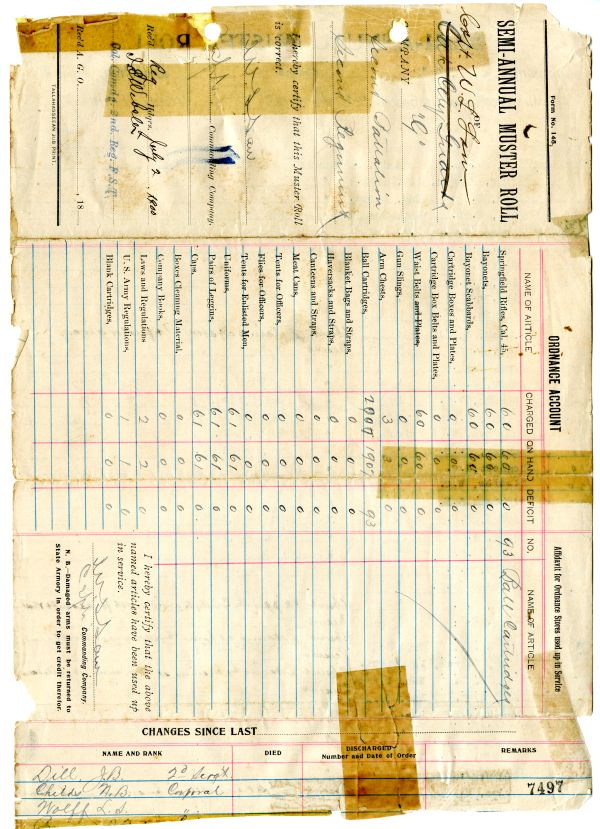 Form No. 148.
SEMI-ANNUAL MUSTER ROLL
Capt. W. L.
OF
Guards
COMPANY "G"
Second Battalion
Second Regiment
I hereby certify that this Muster Roll
is correct.
Commanding Company.
Rec'd Reg. Hdqrs. July 2, 1900
Col. Comd'g. 2nd. Reg. F. S. T.
Rec'd A. G. O. , 18
TALLAHASSEAN JOB PRINT.
ORDNANCE ACCOUNT
NAME OF ARTICLE CHARGED ON HAND DEFICIT
Springfield Rifles, Cal. 45, 60 60 0
Bayonets, 60 60 0
Bayonet Scabbards, 60 60 0
Cartridge Boxes and Plates, 0 0 0
Cartridge Box Belts and Plates, 0 0 0
Waist Belts and Plates, 60 60 0
Gun Slings, 0 0 0
Arm Chests, 3 3 0
Ball Cartridges, 2000 1907 93
Blanket Bags and Straps, 0 0 0
Haversacks and Straps, 0 0 0
Canteens and Straps, 0 0 0
Meat Cans, 0 0 0
Tents for Officers, 0 0 0
Flies for Officers, 0 0 0
Tents for Enlisted Men, 0 0 0
Uniforms, 61 61 0
Pairs of Leggins, 61 61 0
Caps, 61 61 0
Boxes Cleaning Material, 0 0 0
Company Books, 0 0 0
Laws and Regulations 2 2 0
U. S. Army Regulations, 1 1 0
Blank Cartridges, 0 0 0
Affidavit for Ordnance Stores used up in Service
NO. NAME OF ARTICLE
93 Ball Cartridges
I hereby certify that the above
named articles have been used up
in service.
Commanding Company.
N. B.—Damaged arms must be returned to
State Armory in order to get credit therefor.
CHANGES SINCE LAST
NAME AND RANK DIED DISCHARGED REMARKS
Number and Date of Order
Dill, J.B. 2d Sergt.
Childs N.B. Corporal
Wolff L.S. "
7497